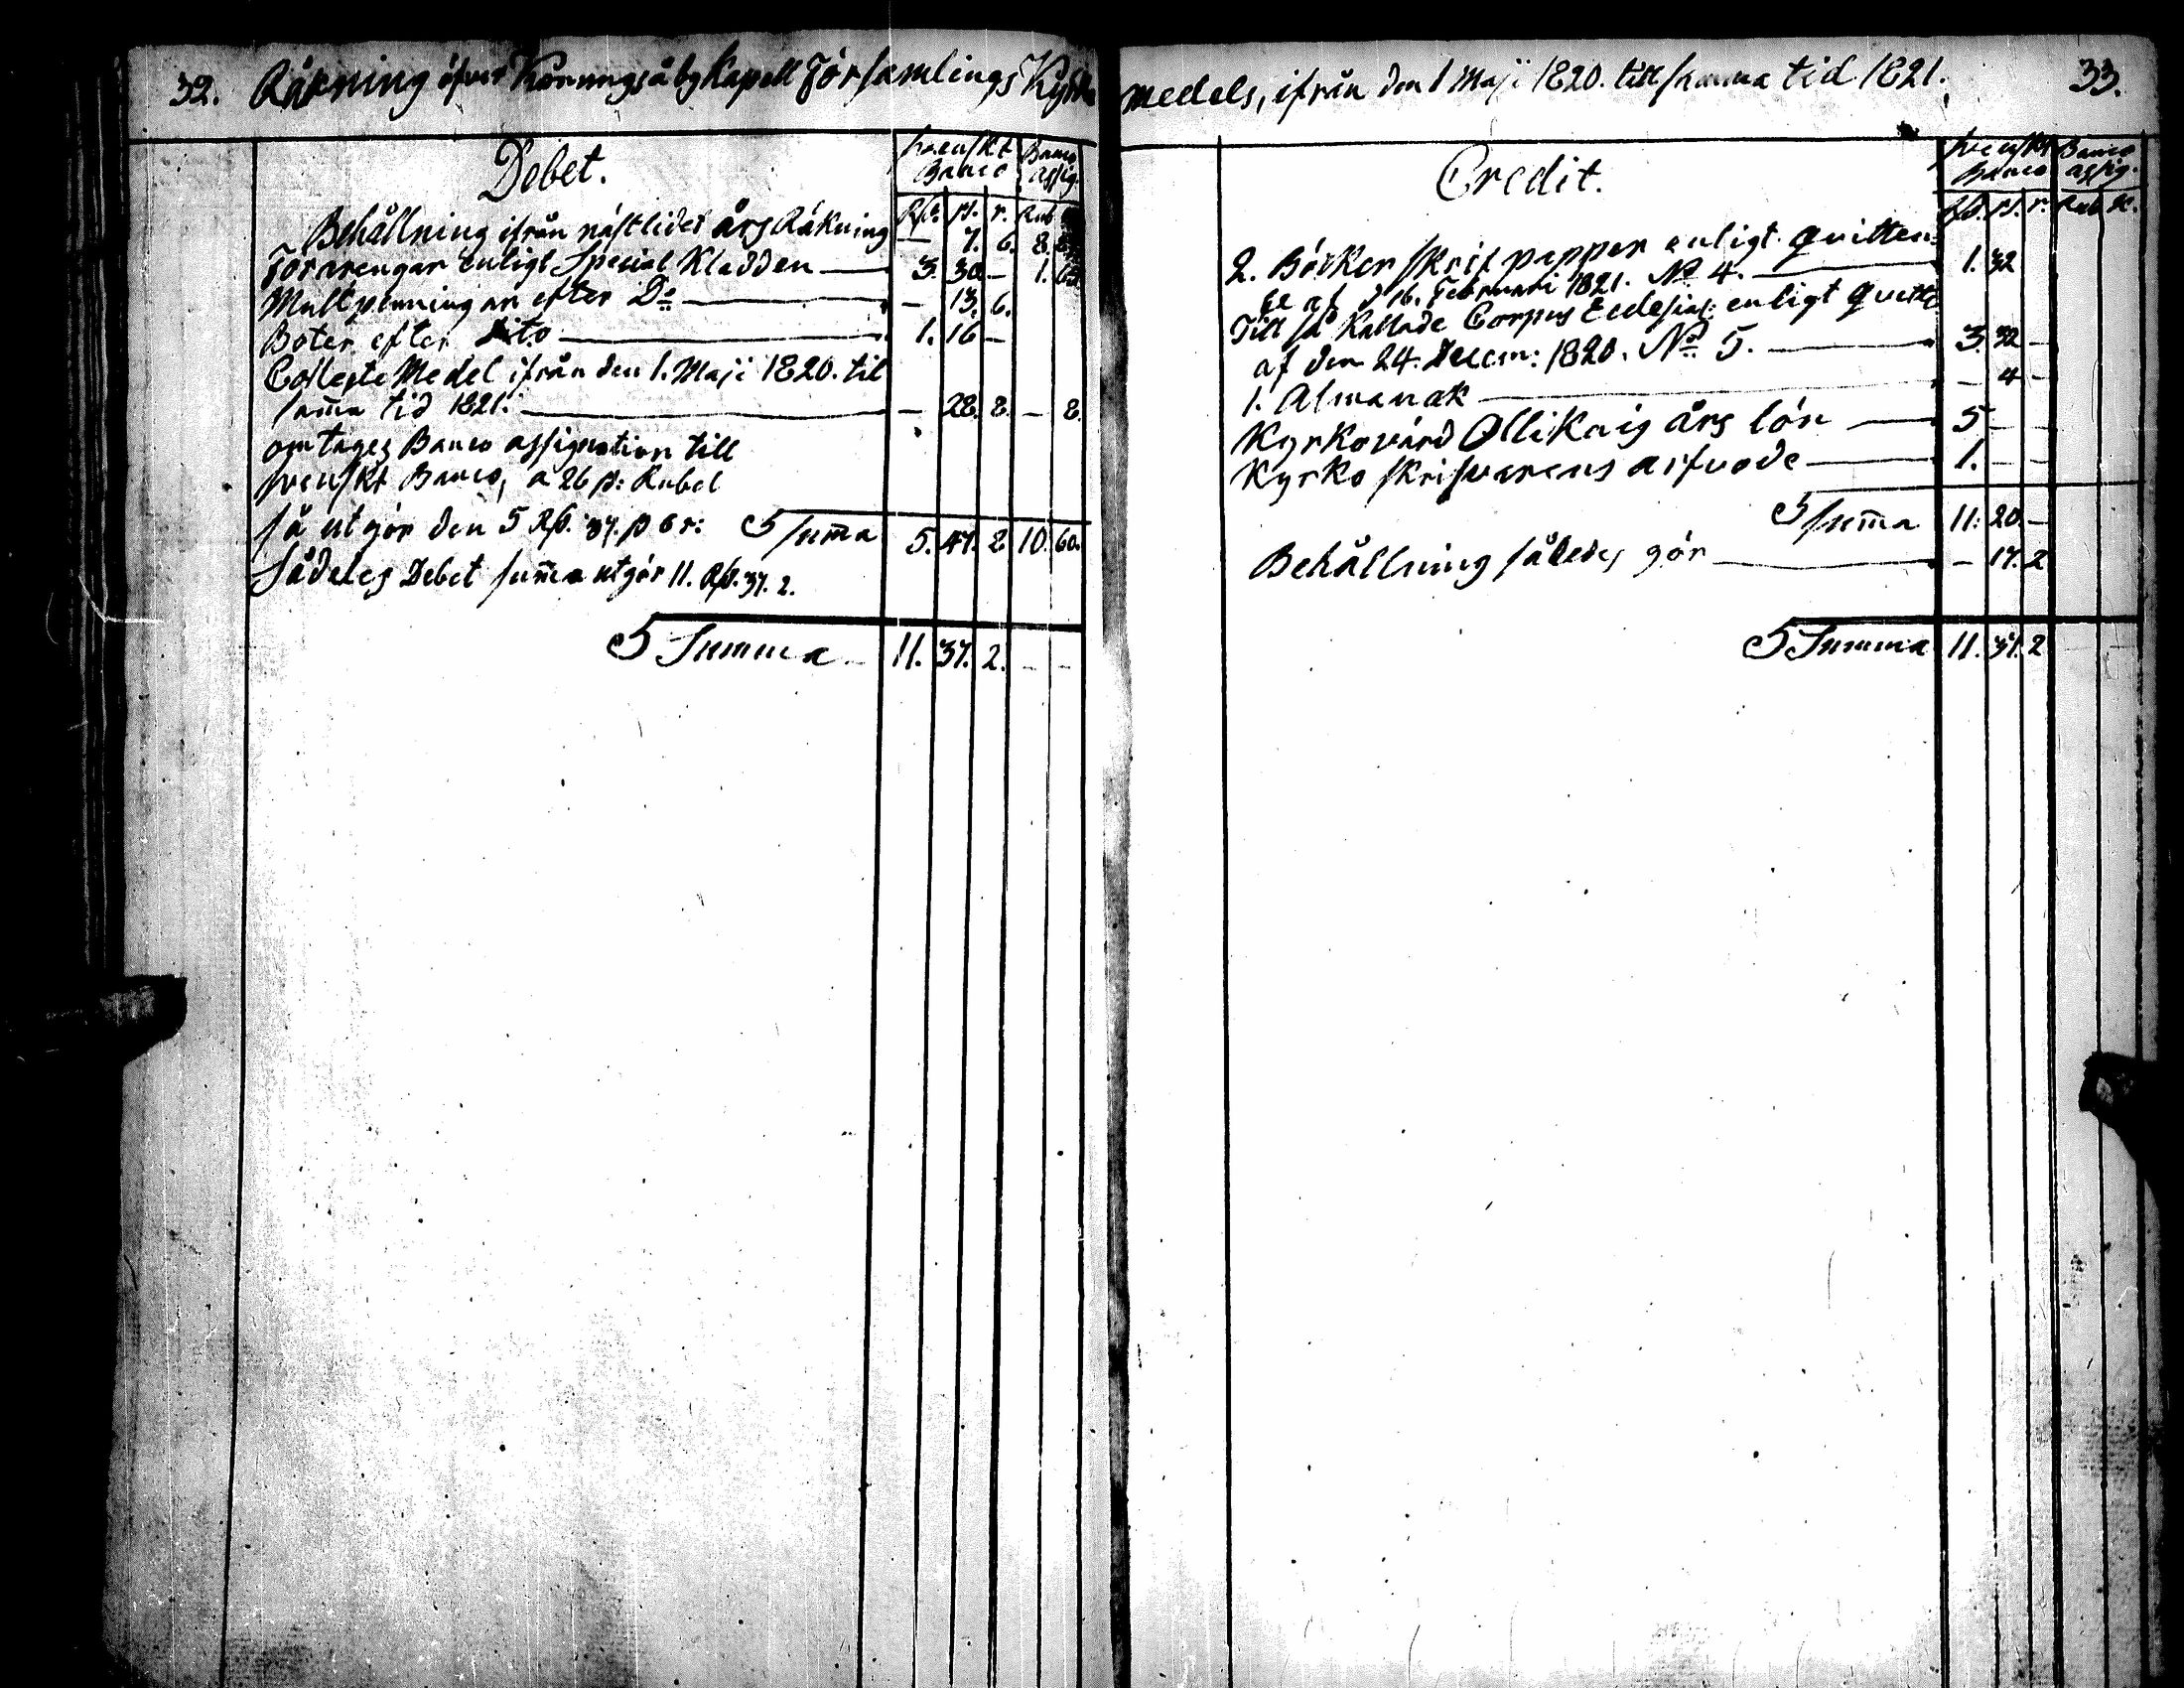 32. Räkning öfver Konungsåby Kapell Församlings Kyrko
Debet.
svenskt Banco
Banco assig.
Rd. s. r. Rub
Behållning ifrån nästlidet års Räkning — 7. 6. 8.
Förärengar enligt Special Kladden — 3. 30. — 1.
Mullpenningar efter Do — 13. 6.
Böter efter Dito — 1. 16 —
Collegte Medel ifrån den 1. Maji 1820. til
sama tid 1821. — 28. 8. — 8.
omtages Banco assignation till
svenskt Banco, a 26 s: Rubel
så utgör den 5 Rd. 37. s 6 r: Suma 5. 47. 8 10. 60.
Sådeles Debet suma utgör 11. Rd. 37. 2.
Summa — 11. 37. 2. — —
medels, ifrån den 1 Maji 1820. till samma tid 1821. 33.
Credit.
svenskt Banco
Banco assig.
Rd. s. r. Rub. K.
2. Böcker skrif papper enligt quitten:
se af d 16. Februari 1821. No 4. — 1. 32
Till så Kallade Corpus Ecclesias: enligt quitte
af den 24. Decem: 1820. No 5. — 3. 32 —
1. Almanak — 4 —
Kyrkovärd Ollikais års lön — 5 — —
Kyrko skrifvarens arfvode — 1. — —
Suma 11: 20. —
Behållning således gör — 17. 2
Summa 11. 37. 2